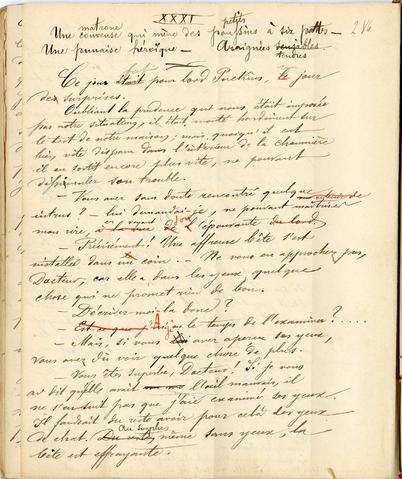 XXXI
286
matrone petits
Une couveuse qui mène des poussins à six pattes —
Une punaise héroïque. — Araignées sensibles.
tendres
Ce jour était fut pour lord Puckins, le jour
des surprises.
Oubliant la prudence qui nous était imposée
par notre situation, il était monté hardiment sur
le toit de notre maison; mais, quoiqu'il eut
bien vite disparu dans l'intérieur de la chaumière
il en sortit encore plus vite, ne pouvant
dissimuler son trouble.
— Vous avez sans doute rencontré quelque
intrus? — lui demandai-je, ne pouvant maîtriser
mon rire, à la vue de son l'épouvante du lord.
— Précisément! Une affreuse bête s'est
installée dans un coin. — Ne vous en approchez pas,
Docteur, car elle a dans les yeux quelque
chose qui ne promet rien de bon.
— Décrivez-moi la donc?
— Ai-je eu le temps de l'examiner?....
— Mais, si vous avez aperçu ses yeux,
vous avez dû voir quelque chose de plus.
— Vous êtes superbe, Docteur! Si je vous
ai dit qu'elle avait l'œil mauvais, il
ne s'en suit pas que j'aie examiné ses yeux.
Il faudrait du reste avoir pour cela des yeux
Au surplus
de chat. Du reste, même sans yeux, la
bête est effrayante.